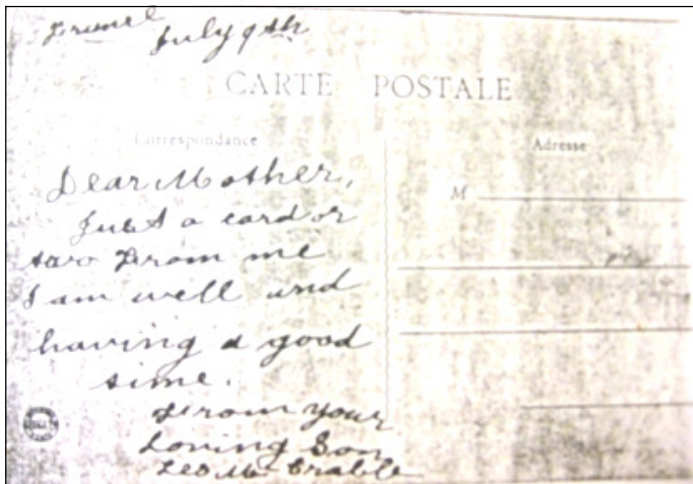 July 9th
CARTE POSTALE
Correspondance
Adresse
M
Dear Mother,
Just a card or
two From me
I am well and
having a good
time.
From your
Loving Son
Leo